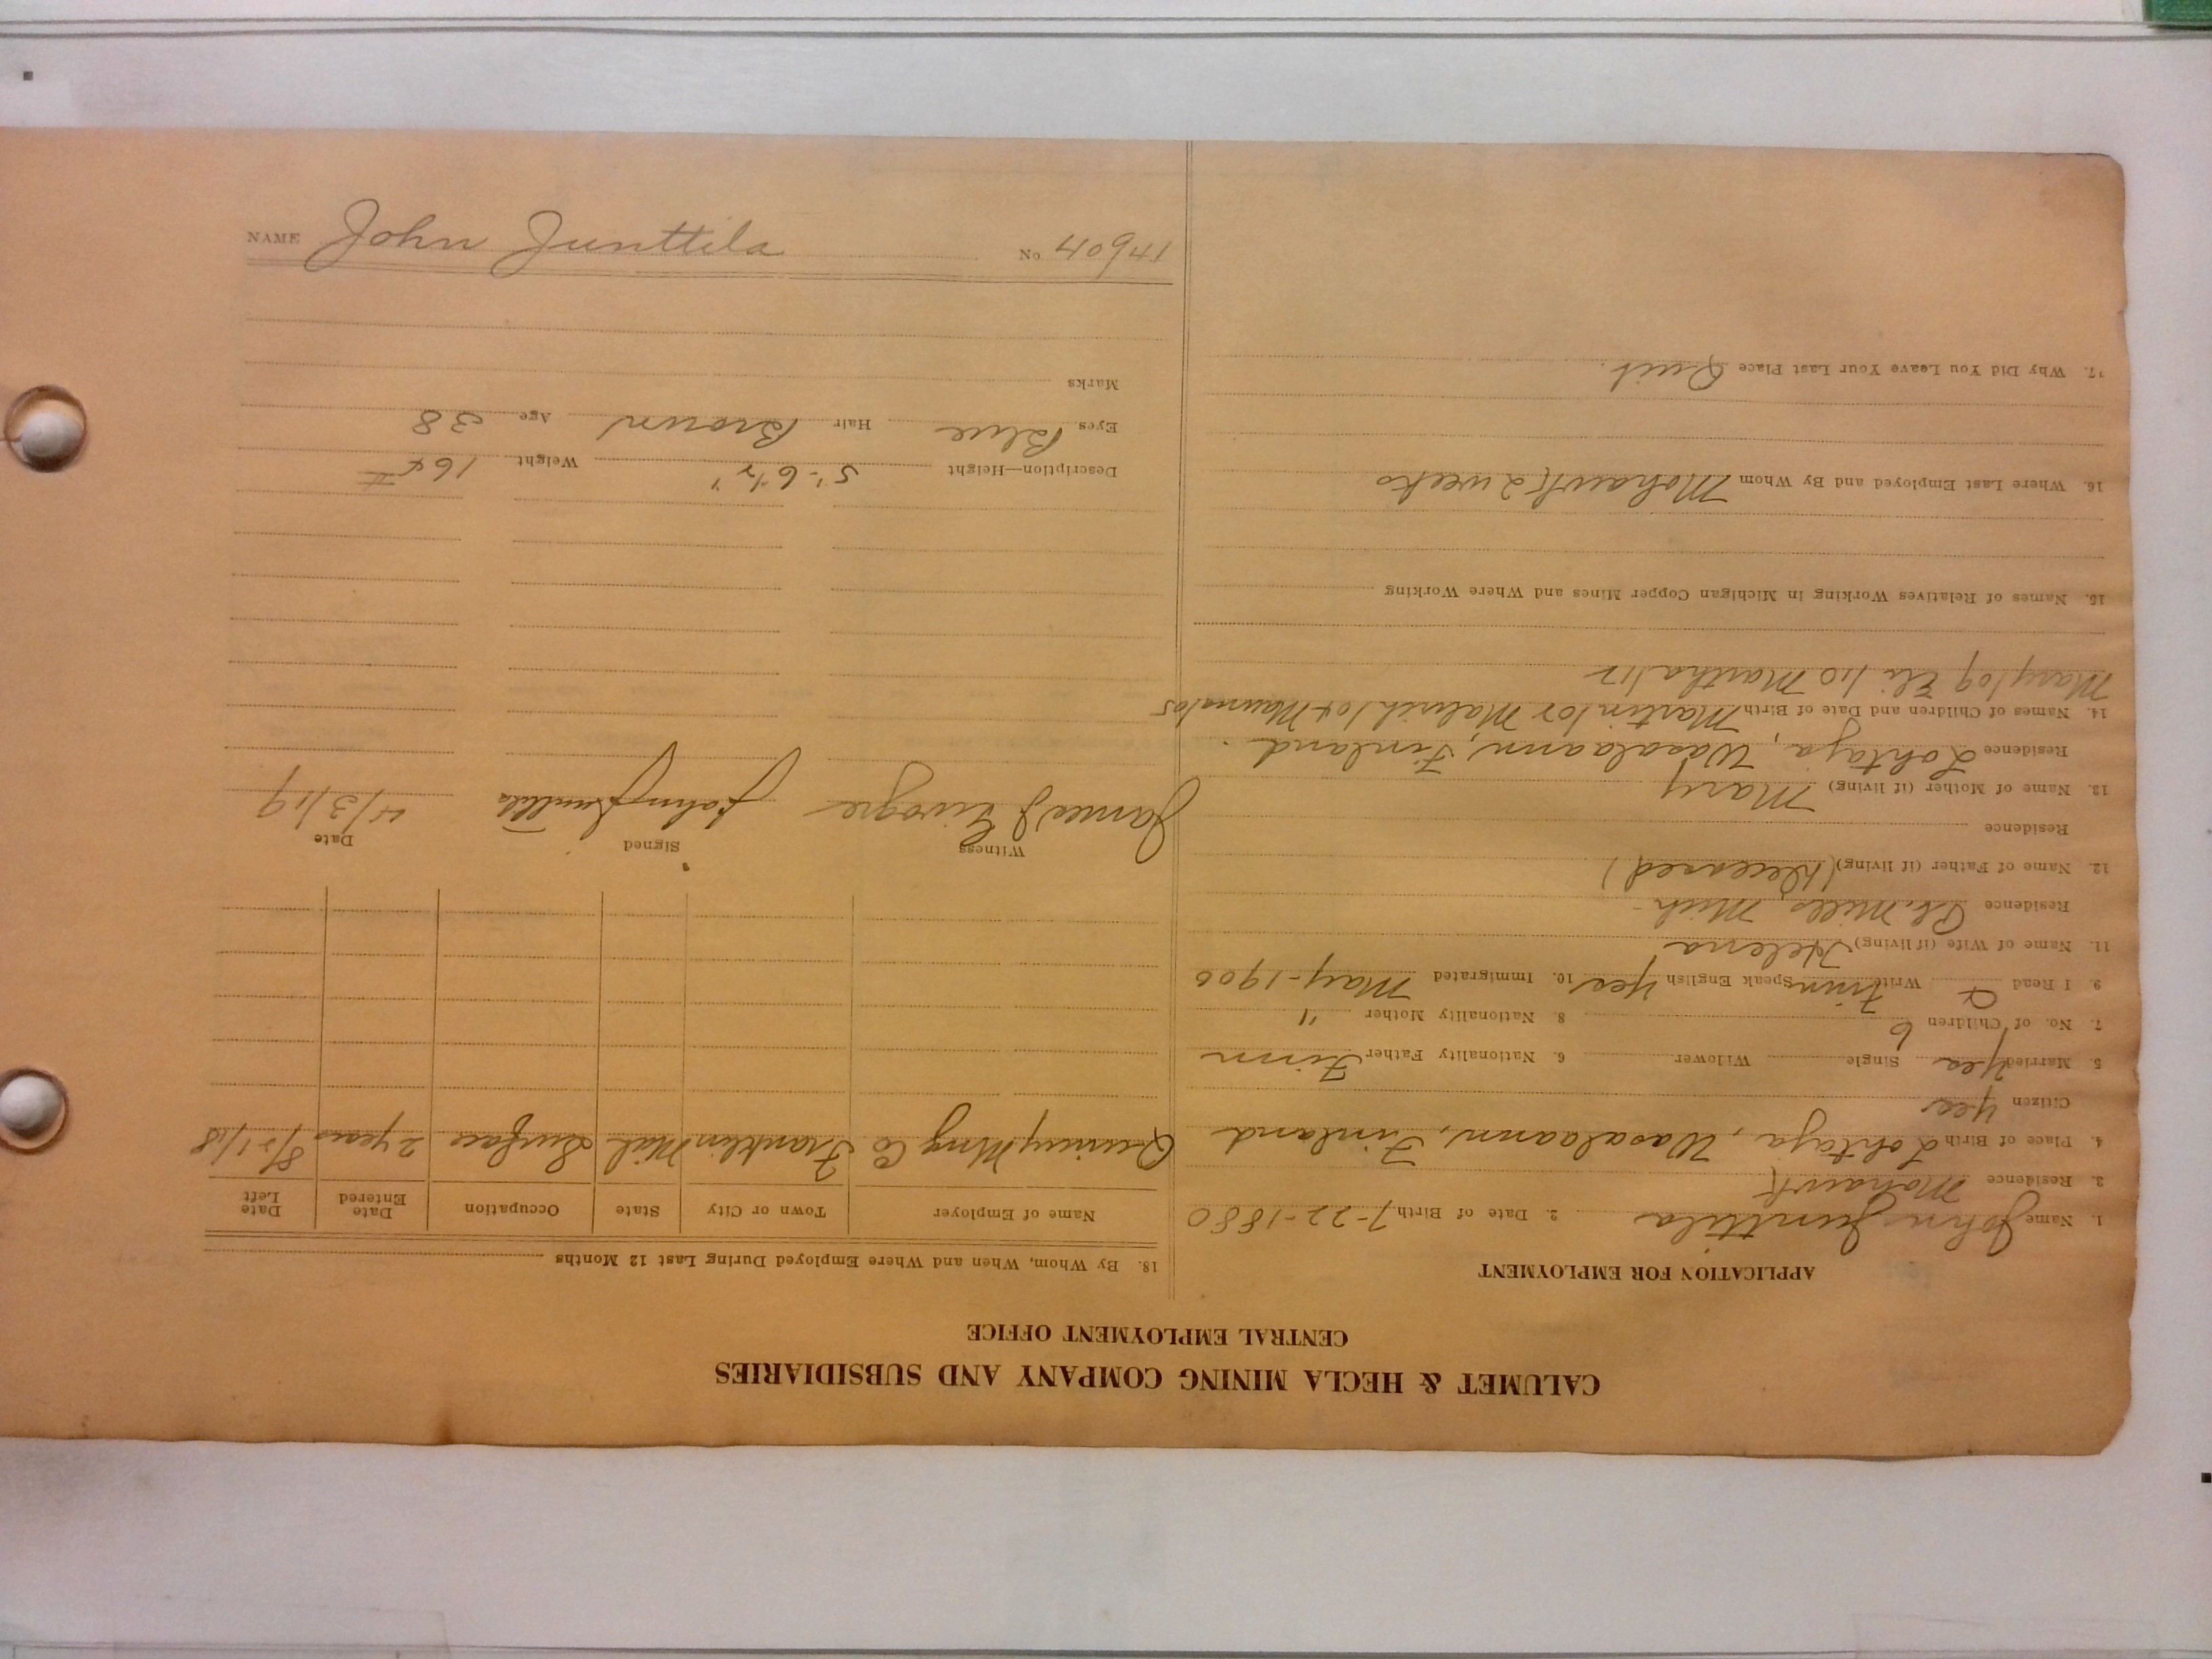 CALUMET & HECLA MINING COMPANY AND SUBSIDIARIES
CENTRAL EMPLOYMENT OFFICE
APPLICATION FOR EMPLOYMENT
1. Name John Junttila 2. Date of Birth 7-22-1880
3. Residence Mohawk
4. Place of Birth Lohtaja, Wasalaann, Finland
Citizen Yes
5. Married Yes Single Widower 6. Nationality Father Finn
7. No. of Children 6 8. Nationality Mother "
9. I Read & Write Finn Speak English Yes 10. Immigrated May-1906
11. Name of Wife (if living) Helena
Residence Pt. Mills Mich-
12. Name of Father (if living) (deceased)
Residence
13. Name of Mother (if living) Mary
Residence Lohtaja, Wasalaann, Finland.
14. Names of Children and Date of Birth Martin/02 /04 /05
Mary/09 /10 Martha/12
15. Names of Relatives Working in Michigan Copper Mines and Where Working
16. Where Last Employed and By Whom Mohawk 2 weeks
17. Why Did You Leave Your Last Place Quit.
18. By Whom, When and Where Employed During Last 12 Months
Name of Employer Town or City State Occupation Date Entered Date Left
Quincy Mng Co Franklin Mich Surface 2 years 8/31/18
Witness Signed Date
James J John Junttila 4/3/19
Description—Height 5'-6½" Weight 165 #
Eyes Blue Hair Brown Age 38
Marks
NAME John Junttila
No. 40941